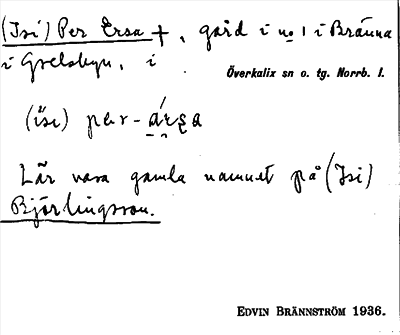 (Isi) Per Ersa +, gård i no 1 i Bränna
i Grelsbyn, i
Överkalix sn o. tg. Norrb. l.
(isi) per-ærsa
Lär vara gamla namnet på (Isi)
Björlingsson.
EDVIN BRÄNNSTRÖM 1936.